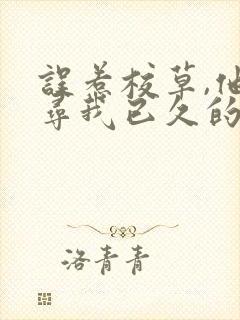 误惹校草,他
寻我已久的
洛青青